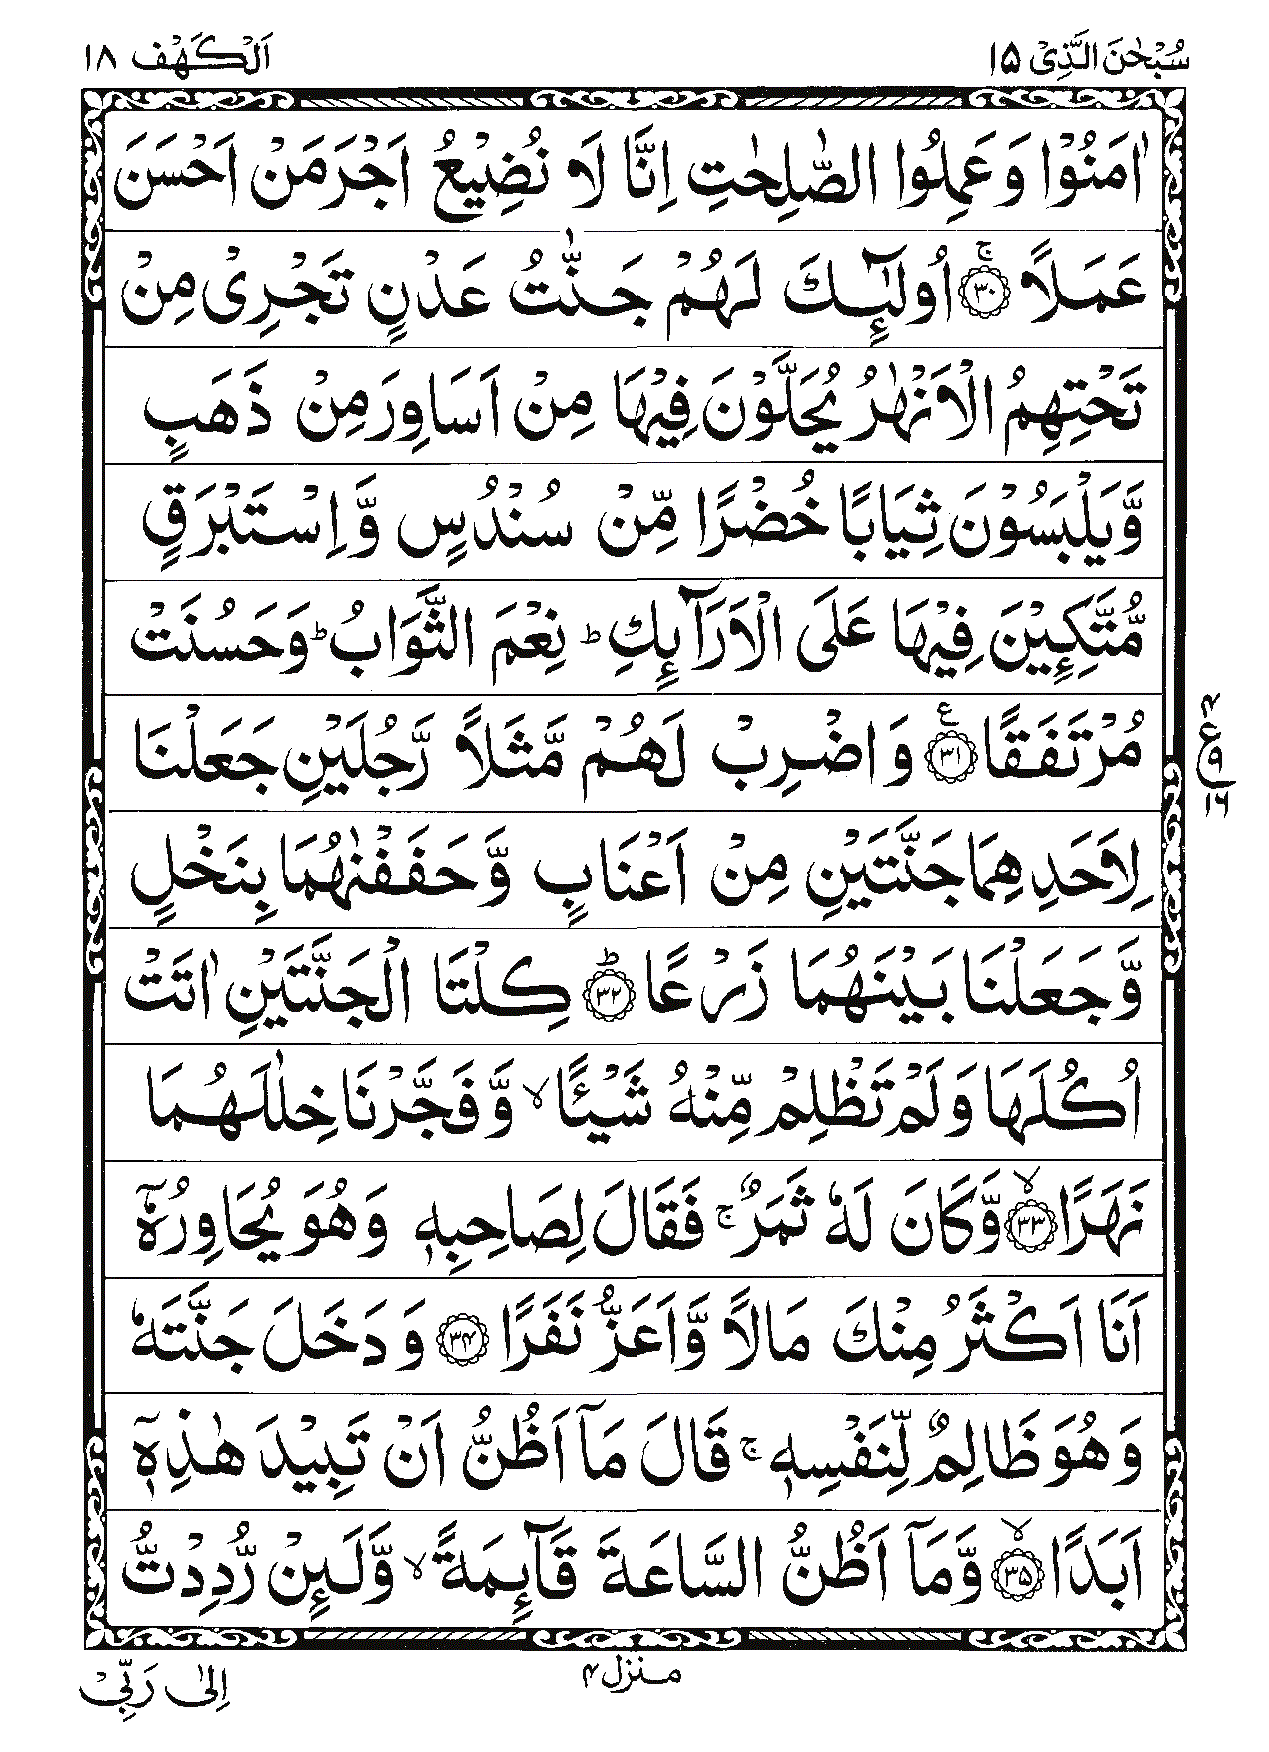 سُبْحٰنَ الَّذِیْ ۱۵
اَلْكَهْف ۱۸
اٰمَنُوْا وَعَمِلُوا الصّٰلِحٰتِ اِنَّا لَا نُضِیْعُ اَجْرَ مَنْ اَحْسَنَ
عَمَلًا ۚ﴿۳۰﴾ اُولٰٓئِكَ لَهُمْ جَنّٰتُ عَدْنٍ تَجْرِیْ مِنْ
تَحْتِهِمُ الْاَنْهٰرُ یُحَلَّوْنَ فِیْهَا مِنْ اَسَاوِرَ مِنْ ذَهَبٍ
وَّیَلْبَسُوْنَ ثِیَابًا خُضْرًا مِّنْ سُنْدُسٍ وَّ اِسْتَبْرَقٍ
مُّتَّكِـِٕیْنَ فِیْهَا عَلَی الْاَرَآئِكِ ؕ نِعْمَ الثَّوَابُ ؕ وَحَسُنَتْ
مُرْتَفَقًا ﴿۳۱﴾ ع وَ اضْرِبْ لَهُمْ مَّثَلًا رَّجُلَیْنِ جَعَلْنَا
۴
ع
۹
۱۶
لِاَحَدِهِمَا جَنَّتَیْنِ مِنْ اَعْنَابٍ وَّ حَفَفْنٰهُمَا بِنَخْلٍ
وَّجَعَلْنَا بَیْنَهُمَا زَرْعًا ؕ﴿۳۲﴾ كِلْتَا الْجَنَّتَیْنِ اٰتَتْ
اُكُلَهَا وَلَمْ تَظْلِمْ مِّنْهُ شَیْـًٔا ۙ وَّ فَجَّرْنَا خِلٰلَهُمَا
نَهَرًا ۙ﴿۳۳﴾ وَّكَانَ لَهٗ ثَمَرٌ ۚ فَقَالَ لِصَاحِبِهٖ وَهُوَ یُحَاوِرُهٗۤ
اَنَا اَكْثَرُ مِنْكَ مَالًا وَّاَعَزُّ نَفَرًا ﴿۳۴﴾ وَ دَخَلَ جَنَّتَهٗ
وَهُوَ ظَالِمٌ لِّنَفْسِهٖ ۚ قَالَ مَاۤ اَظُنُّ اَنْ تَبِیْدَ هٰذِهٖۤ
اَبَدًا ۙ﴿۳۵﴾ وَّمَاۤ اَظُنُّ السَّاعَةَ قَآئِمَةً ۙ وَّلَئِنْ رُّدِدْتُّ
منزل ۴
اِلٰی رَبِّیْ